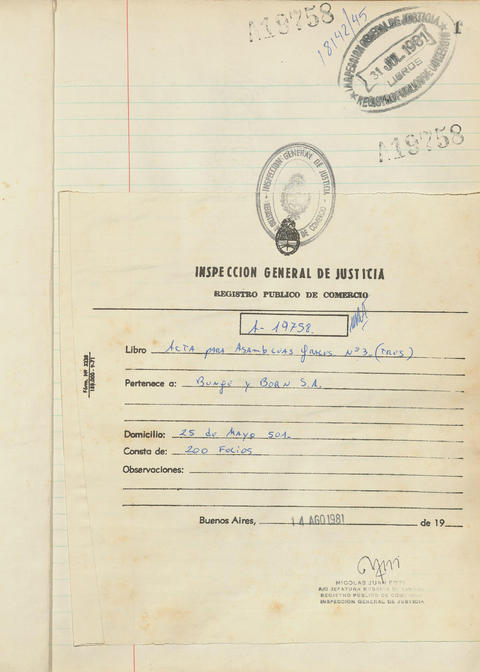 A19758
18142/45
1
INSPECCION GENERAL DE JUSTICIA
31 JUL. 1981
LIBROS
REGISTRO PUBLICO DE COMERCIO
A19758
INSPECCION GENERAL DE JUSTICIA
DE COMERCIO
INSPECCION GENERAL DE JUSTICIA
REGISTRO PUBLICO DE COMERCIO
A-19758.
Libro Acta para Asambleas Grales Nº3 (tres)
Pertenece a: Bunge y Born S.A.
Domicilio: 25 de Mayo 501.
Consta de: 200 Folios
Observaciones:
Buenos Aires, 14 AGO 1981 de 19
Form. Nº 3238
NICOLAS JUAN
A/C JEFATURA
REGISTRO PUBLICO DE COMERCIO
INSPECCION GENERAL DE JUSTICIA